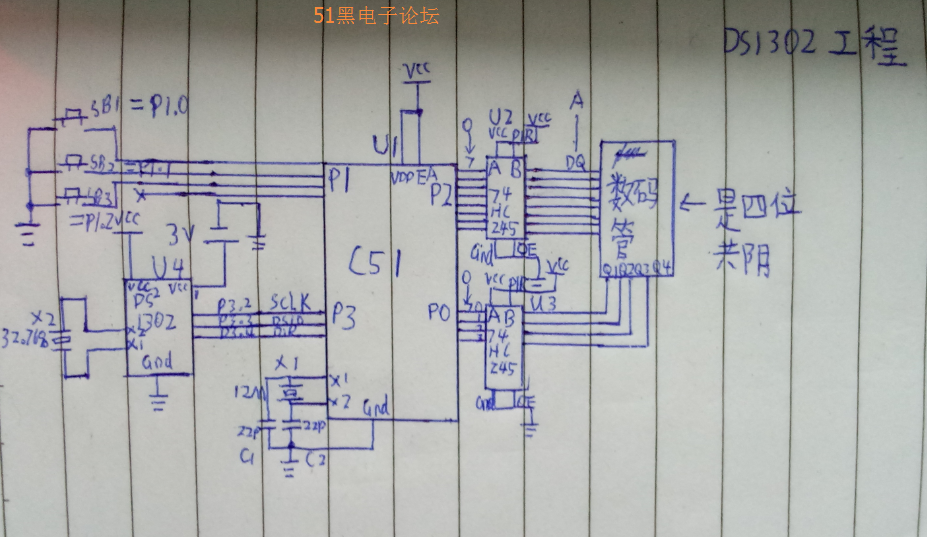 51黑电子论坛
DS1302工程
Vcc
SB1=P1.0
SB2=P1.1
SB3
=P1.2
Vcc
3V
U4
Vcc2 Vcc1
DS
1302
X2
X1
Gnd
X2
32.768
P3.2 SCLK
P3.3
P3.4
U1
VDD EA
P1
P2
C51
P3
P0
X1
X2
Gnd
X1
12M
22P
22P
C1
C2
0
7
U2
Vcc
Vcc
DIR
A B
74
HC
245
Gnd
OE
A
DQ
数码
管
Q1 Q2 Q3 Q4
←是四位
共阴
0
Vcc
Vcc
U3
A B
74
HC
245
Gnd
OE